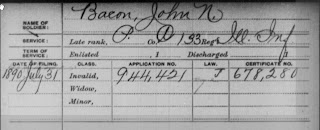 NAME OF SOLDIER: Bacon, John N.
SERVICE: Late rank, P. Co. D 133 Reg't Ill. Inf
TERM OF SERVICE: Enlisted 1 Discharged 1
DATE OF FILING. CLASS. APPLICATION NO. LAW. CERTIFICATE NO.
1890 July 31 Invalid, 944,421 J 678,280
Widow,
Minor,